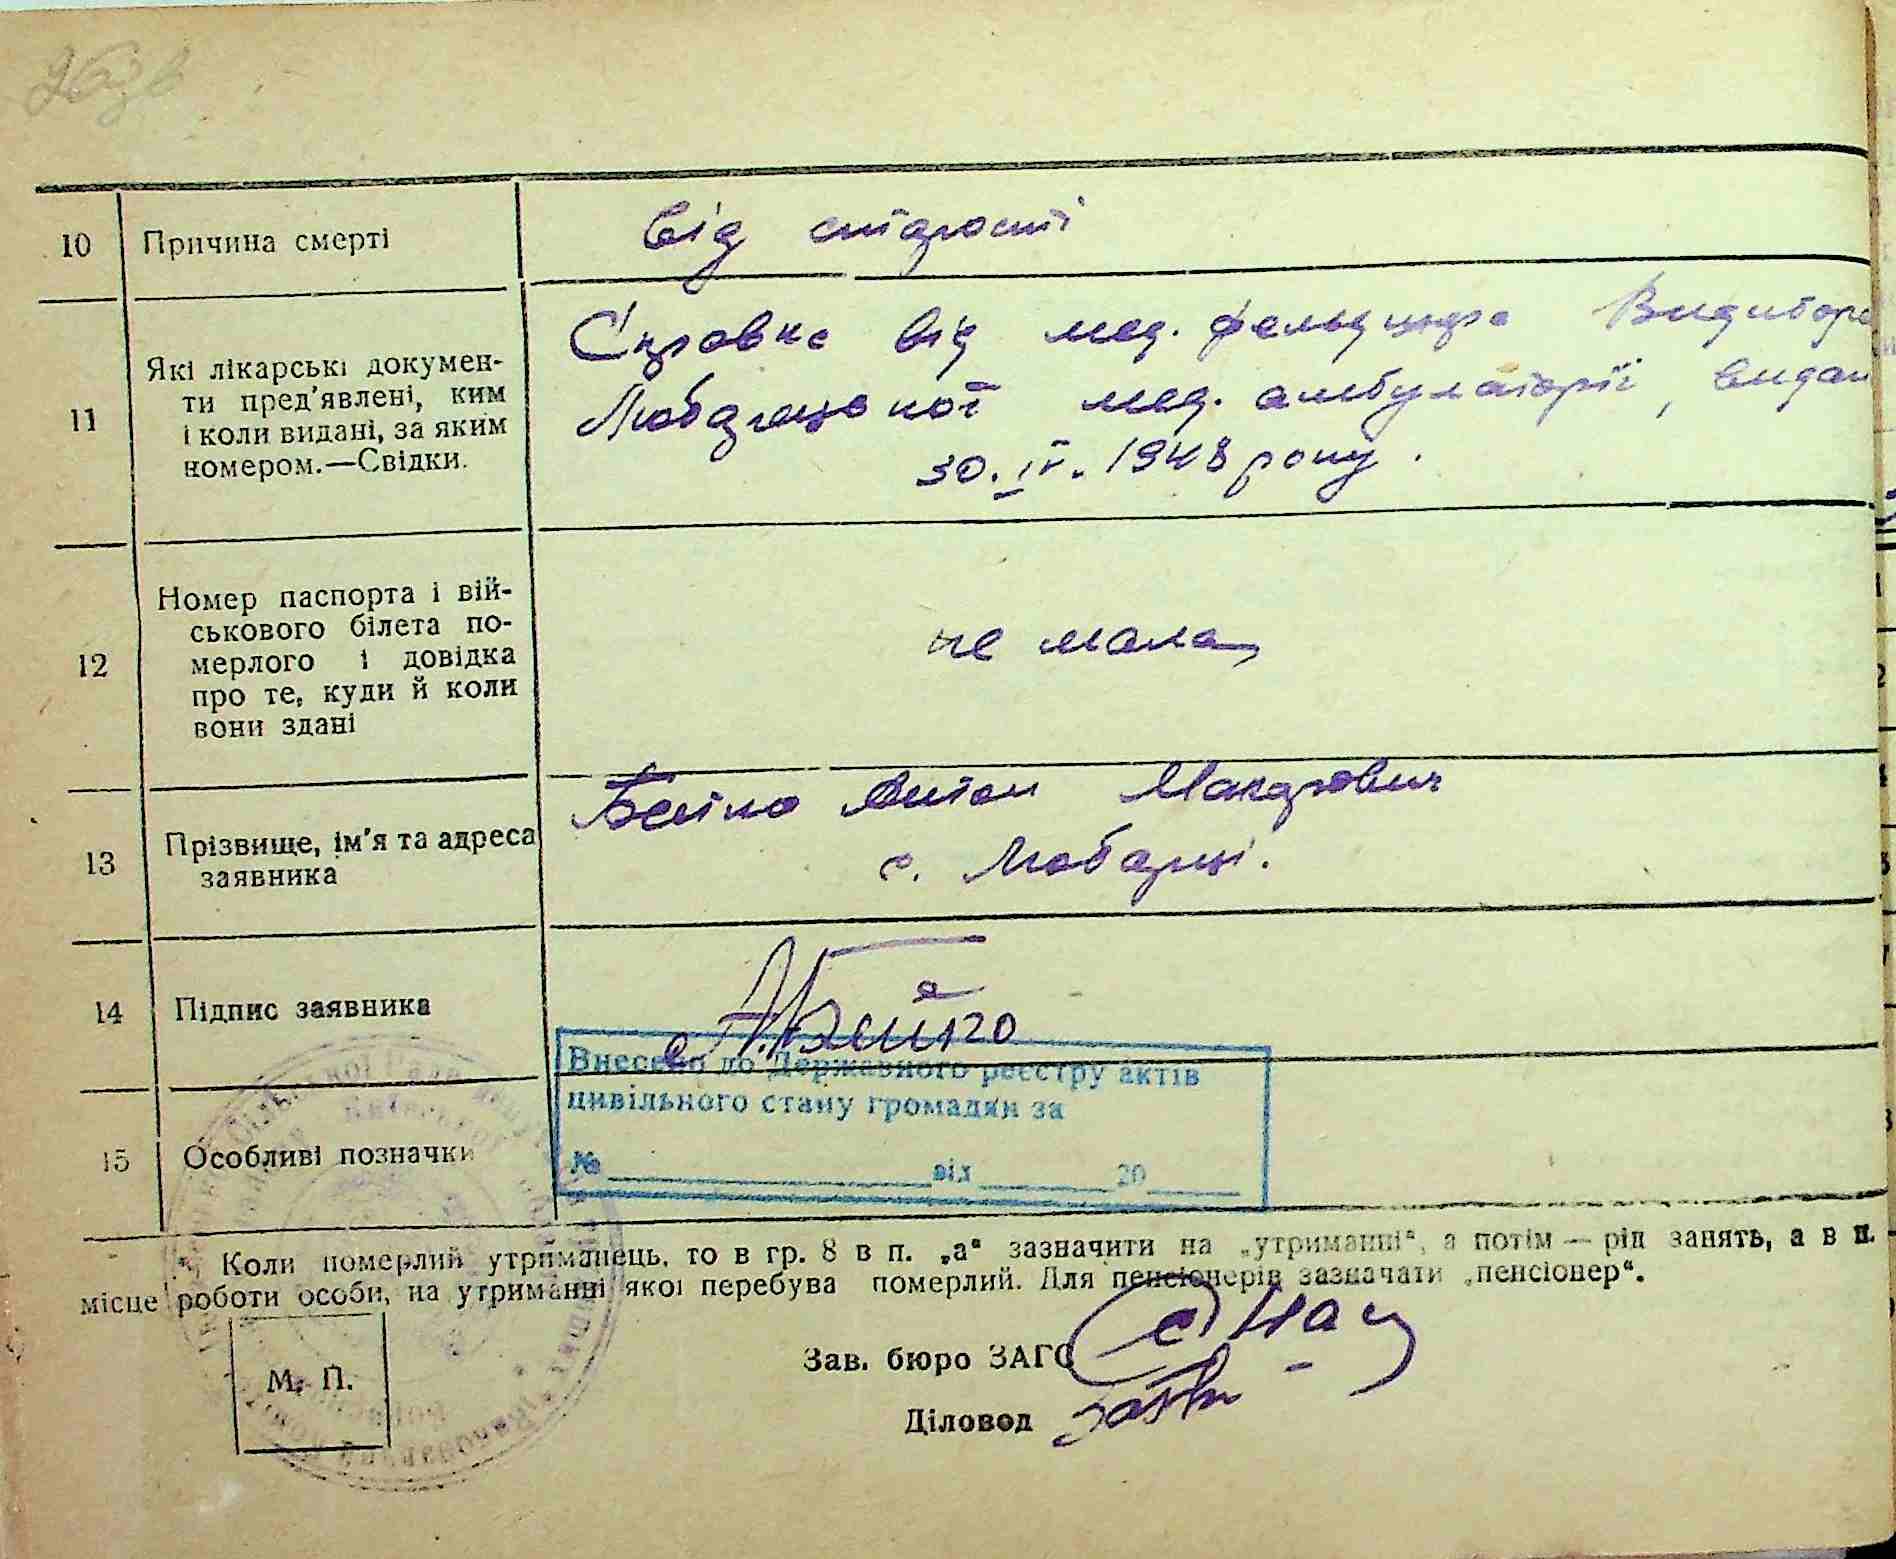 10 Причина смерті
від старости
11 Які лікарські докумен-
ти пред'явлені, ким
і коли видані, за яким
номером.—Свідки.
Справка від мед. фельдшера
Любарецької мед. амбулаторії, видан
30. IV. 1948 року.
12 Номер паспорта і вій-
ськового білета по-
мерлого і довідка
про те, куди й коли
вони здані
не мала
13 Прізвище, ім'я та адреса
заявника
Бейко Антон Макарович
с. Любарці.
14 Підпис заявника
А. Бейко
Внесено до Державного реєстру актів
цивільного стану громадян за
№ від 20
15 Особливі позначки
*) Коли померлий утриманець, то в гр. 8 в п. „а“ зазначити на „утриманні“, а потім — рід занять, а в п.
місце роботи особи, на утриманні якої перебува померлий. Для пенсіонерів зазначати „пенсіонер“.
М. П.
Зав. бюро ЗАГС
Діловод